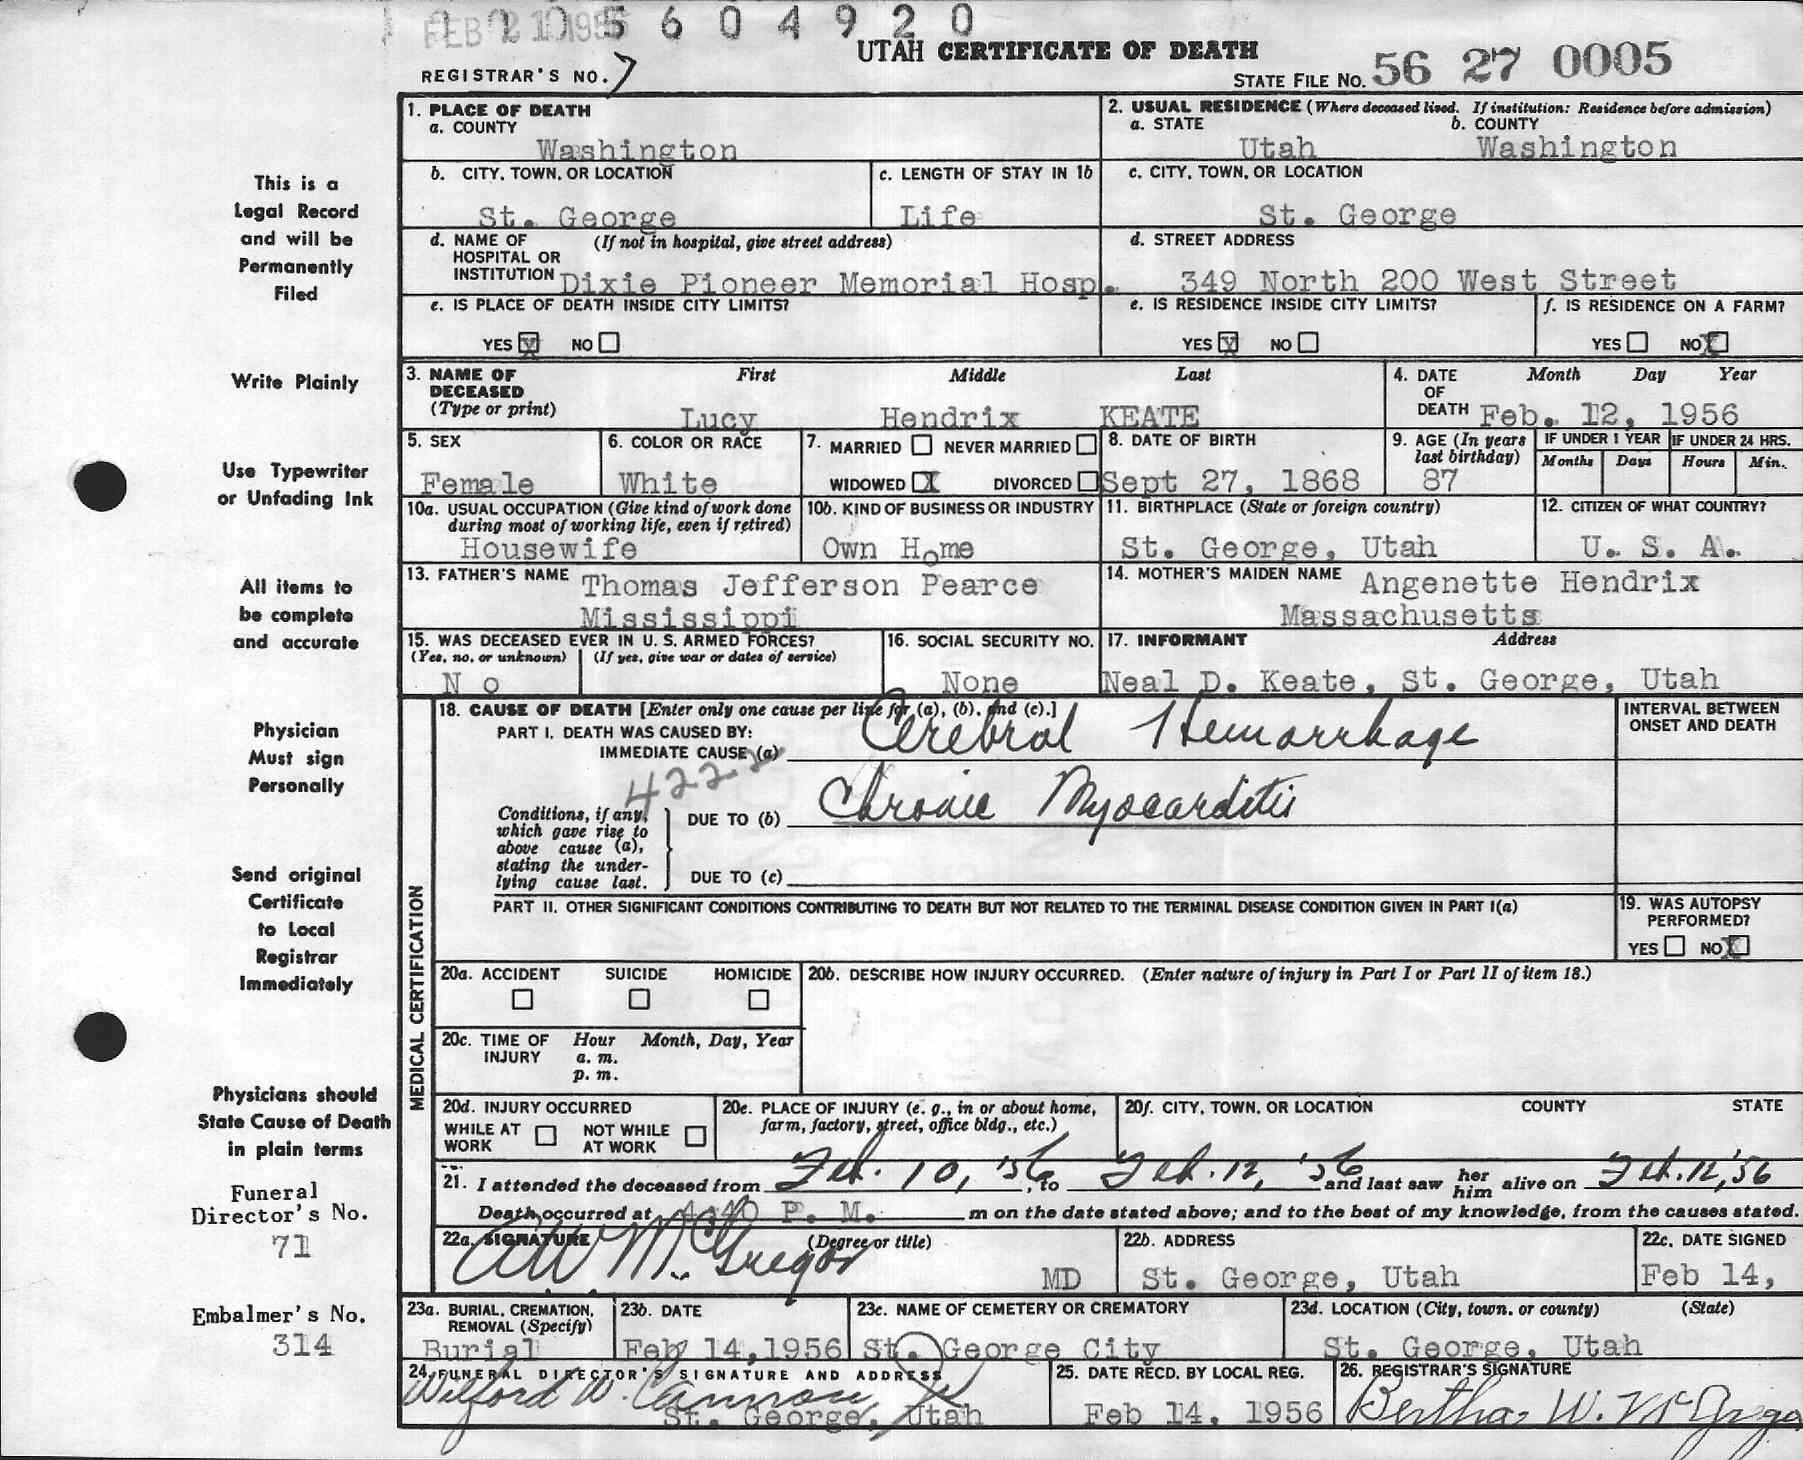 FEB 21 1956
5 6 0 4 9 2 0
UTAH CERTIFICATE OF DEATH
REGISTRAR'S NO. 7
STATE FILE NO. 56 27 0005
This is a
Legal Record
and will be
Permanently
Filed
Write Plainly
Use Typewriter
or Unfading Ink
All items to
be complete
and accurate
Physician
Must sign
Personally
Send original
Certificate
to Local
Registrar
Immediately
Physicians should
State Cause of Death
in plain terms
Funeral
Director's No.
71
Embalmer's No.
314
1. PLACE OF DEATH
a. COUNTY
Washington
2. USUAL RESIDENCE (Where deceased lived. If institution: Residence before admission)
a. STATE b. COUNTY
Utah Washington
b. CITY, TOWN, OR LOCATION
St. George
c. LENGTH OF STAY IN 1b
Life
c. CITY, TOWN, OR LOCATION
St. George
d. NAME OF (If not in hospital, give street address)
HOSPITAL OR
INSTITUTION Dixie Pioneer Memorial Hosp.
d. STREET ADDRESS
349 North 200 West Street
e. IS PLACE OF DEATH INSIDE CITY LIMITS?
YES X NO
e. IS RESIDENCE INSIDE CITY LIMITS?
YES X NO
f. IS RESIDENCE ON A FARM?
YES NO X
3. NAME OF First Middle Last
DECEASED
(Type or print) Lucy Hendrix KEATE
4. DATE Month Day Year
OF
DEATH Feb. 12, 1956
5. SEX
Female
6. COLOR OR RACE
White
7. MARRIED NEVER MARRIED
WIDOWED X DIVORCED
8. DATE OF BIRTH
Sept 27, 1868
9. AGE (In years
last birthday)
87
IF UNDER 1 YEAR IF UNDER 24 HRS.
Months Days Hours Min.
10a. USUAL OCCUPATION (Give kind of work done
during most of working life, even if retired)
Housewife
10b. KIND OF BUSINESS OR INDUSTRY
Own Home
11. BIRTHPLACE (State or foreign country)
St. George, Utah
12. CITIZEN OF WHAT COUNTRY?
U. S. A.
13. FATHER'S NAME Thomas Jefferson Pearce
Mississippi
14. MOTHER'S MAIDEN NAME Angenette Hendrix
Massachusetts
15. WAS DECEASED EVER IN U. S. ARMED FORCES?
(Yes, no, or unknown) (If yes, give war or dates of service)
N o
16. SOCIAL SECURITY NO.
None
17. INFORMANT Address
Neal D. Keate, St. George, Utah
MEDICAL CERTIFICATION
18. CAUSE OF DEATH [Enter only one cause per line for (a), (b), and (c).]
PART I. DEATH WAS CAUSED BY:
IMMEDIATE CAUSE (a) Cerebral Hemorrhage
INTERVAL BETWEEN
ONSET AND DEATH
Conditions, if any,
which gave rise to
above cause (a),
stating the under-
lying cause last.
DUE TO (b) Chronic Myocarditis
DUE TO (c)
PART II. OTHER SIGNIFICANT CONDITIONS CONTRIBUTING TO DEATH BUT NOT RELATED TO THE TERMINAL DISEASE CONDITION GIVEN IN PART I(a)
19. WAS AUTOPSY
PERFORMED?
YES NO X
20a. ACCIDENT SUICIDE HOMICIDE
20b. DESCRIBE HOW INJURY OCCURRED. (Enter nature of injury in Part I or Part II of item 18.)
20c. TIME OF Hour Month, Day, Year
INJURY a. m.
p. m.
20d. INJURY OCCURRED
WHILE AT NOT WHILE
WORK AT WORK
20e. PLACE OF INJURY (e. g., in or about home,
farm, factory, street, office bldg., etc.)
20f. CITY, TOWN, OR LOCATION COUNTY STATE
21. I attended the deceased from Feb. 10, '56, to Feb. 12, '56 and last saw her him alive on Feb. 12, '56
Death occurred at 4:40 P. M. m on the date stated above; and to the best of my knowledge, from the causes stated.
22a. SIGNATURE (Degree or title)
A W McGregor MD
22b. ADDRESS
St. George, Utah
22c. DATE SIGNED
Feb 14,
23a. BURIAL, CREMATION,
REMOVAL (Specify)
Burial
23b. DATE
Feb 14, 1956
23c. NAME OF CEMETERY OR CREMATORY
St. George City
23d. LOCATION (City, town, or county) (State)
St. George, Utah
24. FUNERAL DIRECTOR'S SIGNATURE AND ADDRESS
Wilford W. Cannon
St. George, Utah
25. DATE RECD. BY LOCAL REG.
Feb 14, 1956
26. REGISTRAR'S SIGNATURE
Bertha W. McGrego